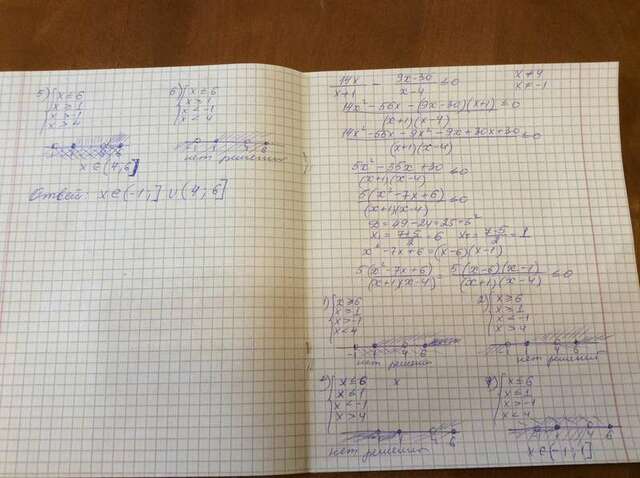 5) { x ≤ 6
x ≥ 1
x > -1
x > 4
4 6
x ∈ (4; 6]
6) { x ≤ 6
x ≥ 1
x < -1
x < 4
6
нет решений
Ответ: x ∈ (-1; ] ∪ (4; 6]
14x/(x+1) - (9x-30)/(x-4) ≤ 0
x ≠ 4
x ≠ -1
(14x² - 56x - (9x-30)(x+1))/((x+1)(x-4)) ≤ 0
(14x² - 56x - 9x² - 9x + 30x + 30)/((x+1)(x-4)) ≤ 0
(5x² - 35x + 30)/((x+1)(x-4)) ≤ 0
5(x² - 7x + 6)/((x+1)(x-4)) ≤ 0
D = 49 - 24 = 25 = 5²
x₁ = (7+5)/2 = 6 x₂ = (7-5)/2 = 1
x² - 7x + 6 = (x-6)(x-1)
5(x² - 7x + 6)/((x+1)(x-4)) = 5(x-6)(x-1)/((x+1)(x-4)) ≤ 0
1) { x ≥ 6
x ≥ 1
x > -1
x < 4
-1 1 4 6
нет решений
2) { x ≥ 6
x ≥ 1
x < -1
x > 4
нет решений
{ x ≤ 6 x
x ≤ 1
x < -1
x > 4
1 4 6
нет решений
{ x ≤ 6
x ≤ 1
x > -1
x < 4
4 6
x ∈ (-1; 1]